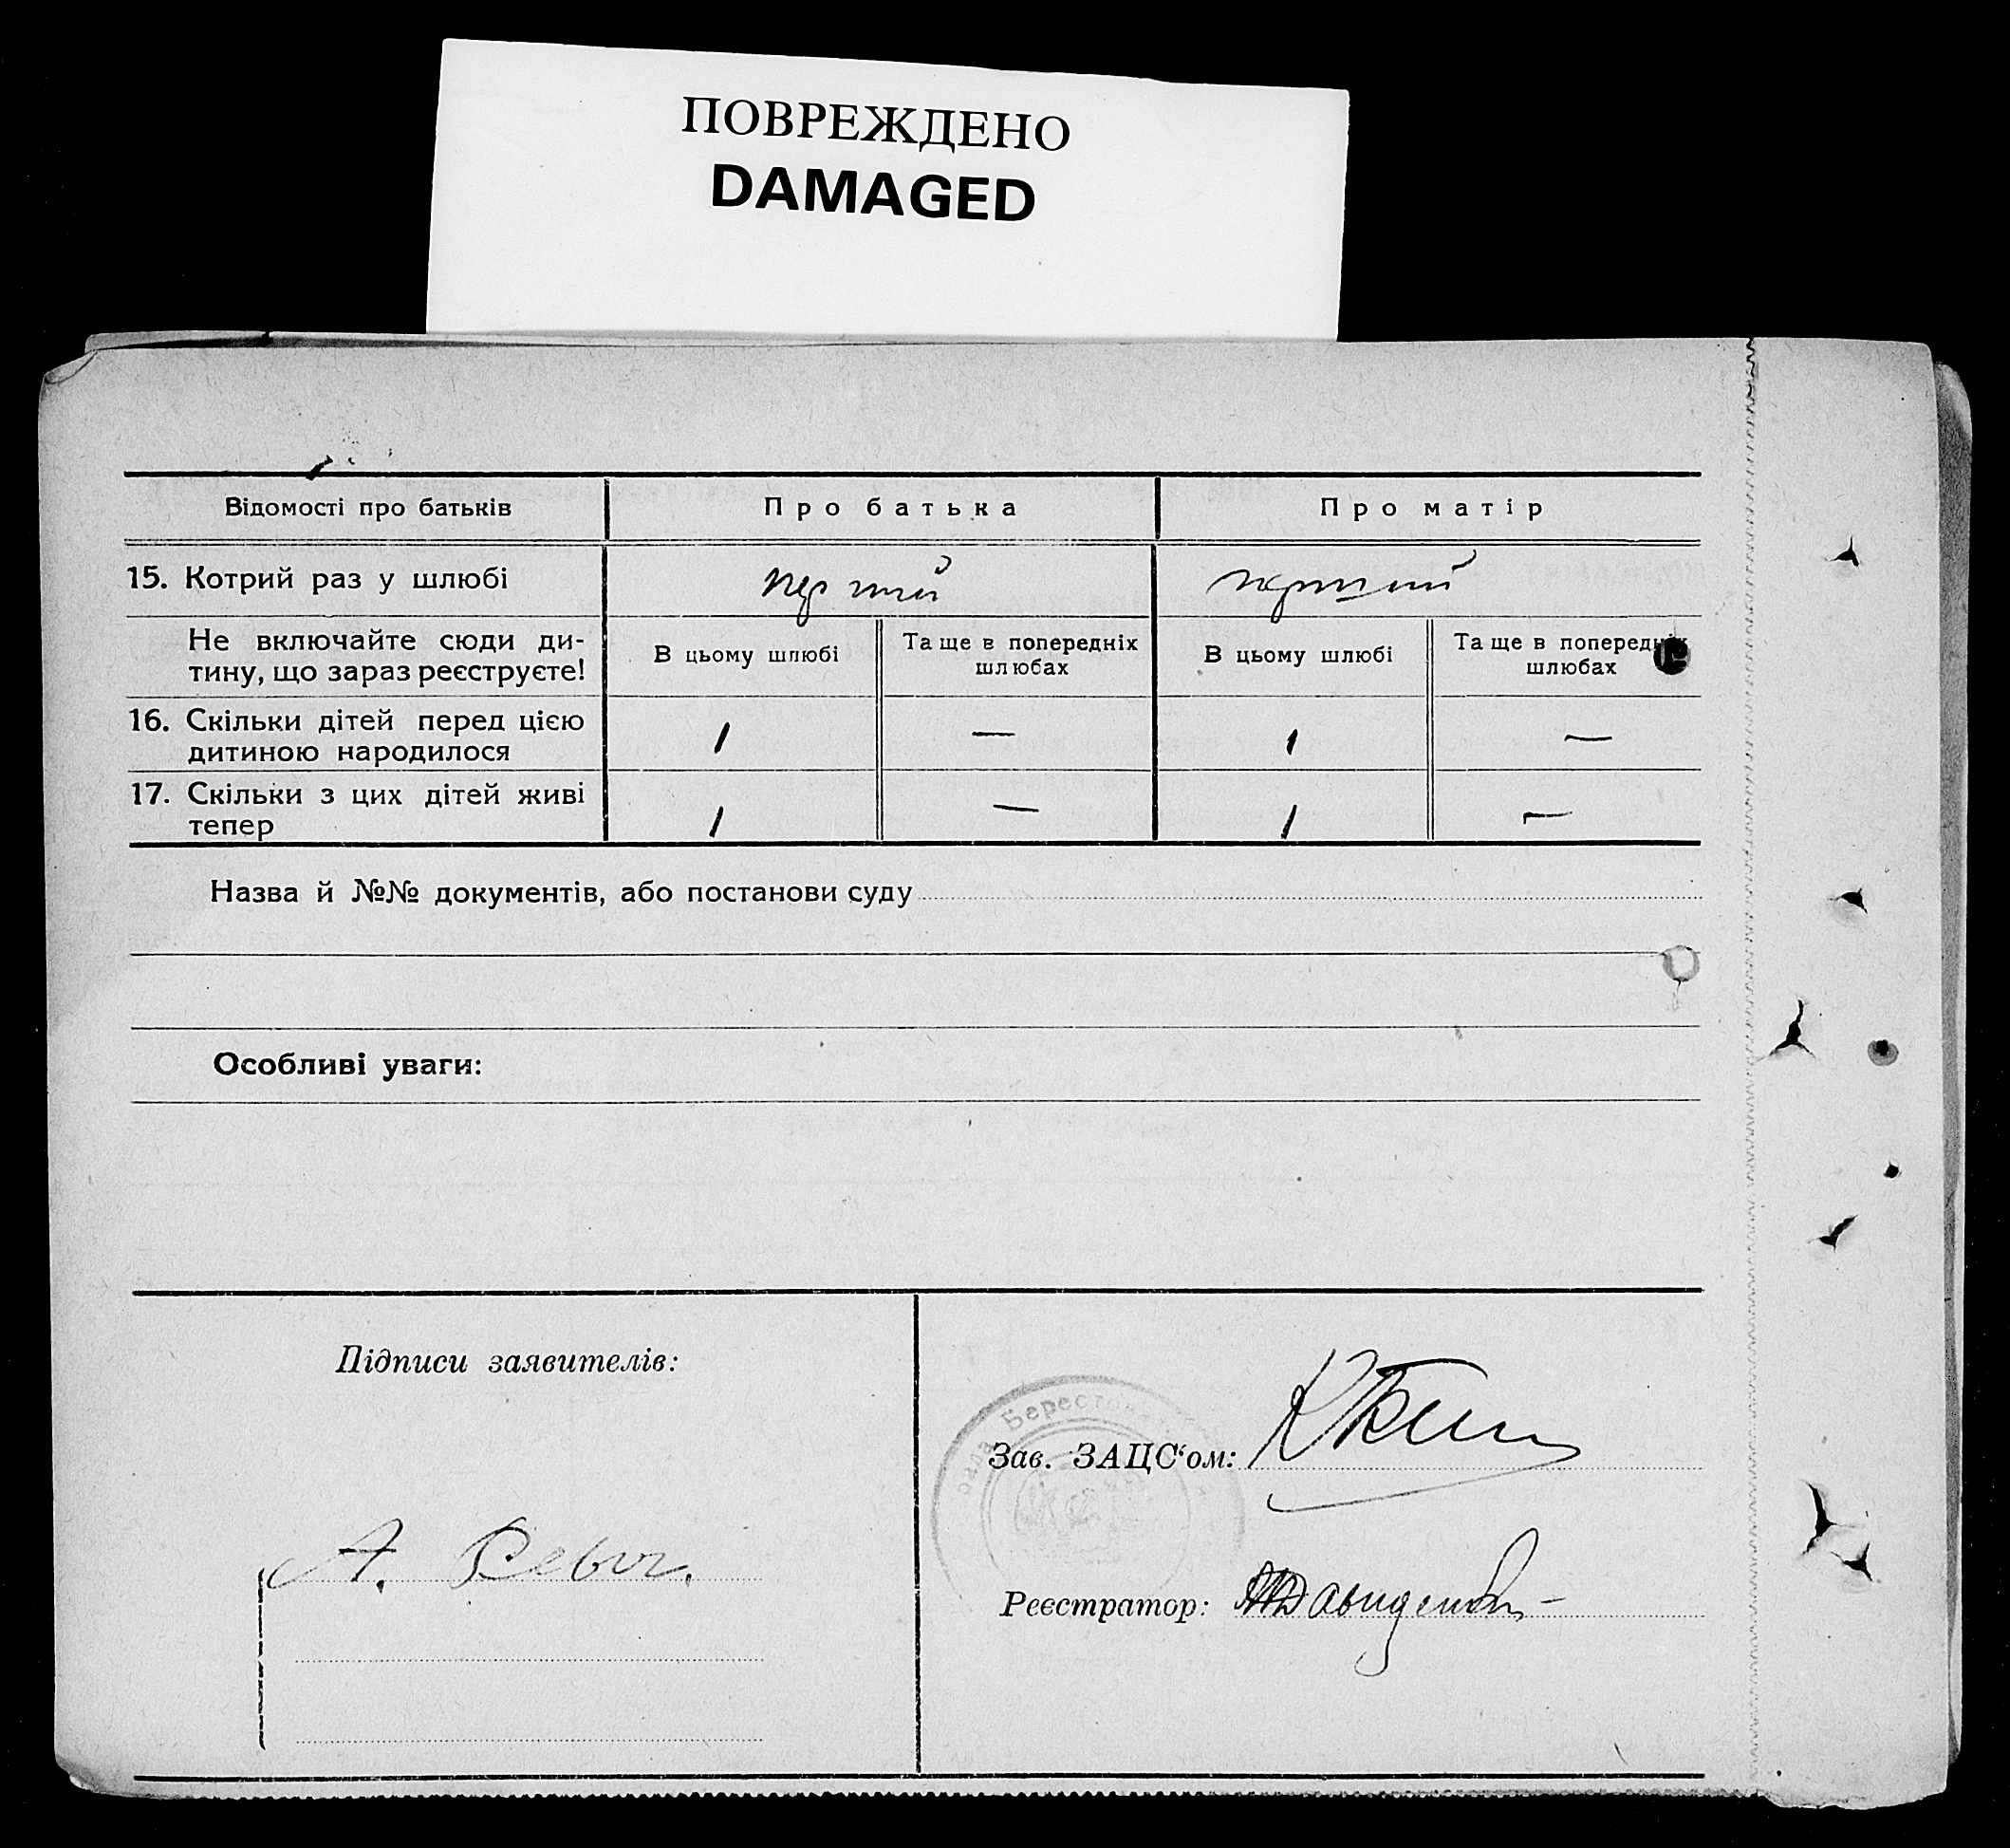 ПОВРЕЖДЕНО
DAMAGED
Відомості про батьків
Про батька
Про матір
15. Котрий раз у шлюбі
перший
перший
Не включайте сюди ди-
тину, що зараз реєструєте!
В цьому шлюбі
Та ще в попередніх
шлюбах
В цьому шлюбі
Та ще в попередніх
шлюбах
16. Скільки дітей перед цією
дитиною народилося
1
—
1
—
17. Скільки з цих дітей живі
тепер
1
—
1
—
Назва й №№ документів, або постанови суду
Особливі уваги:
Підписи заявителів:
А.
Берестов
Зав. ЗАЦС‘ом:
Реєстратор: